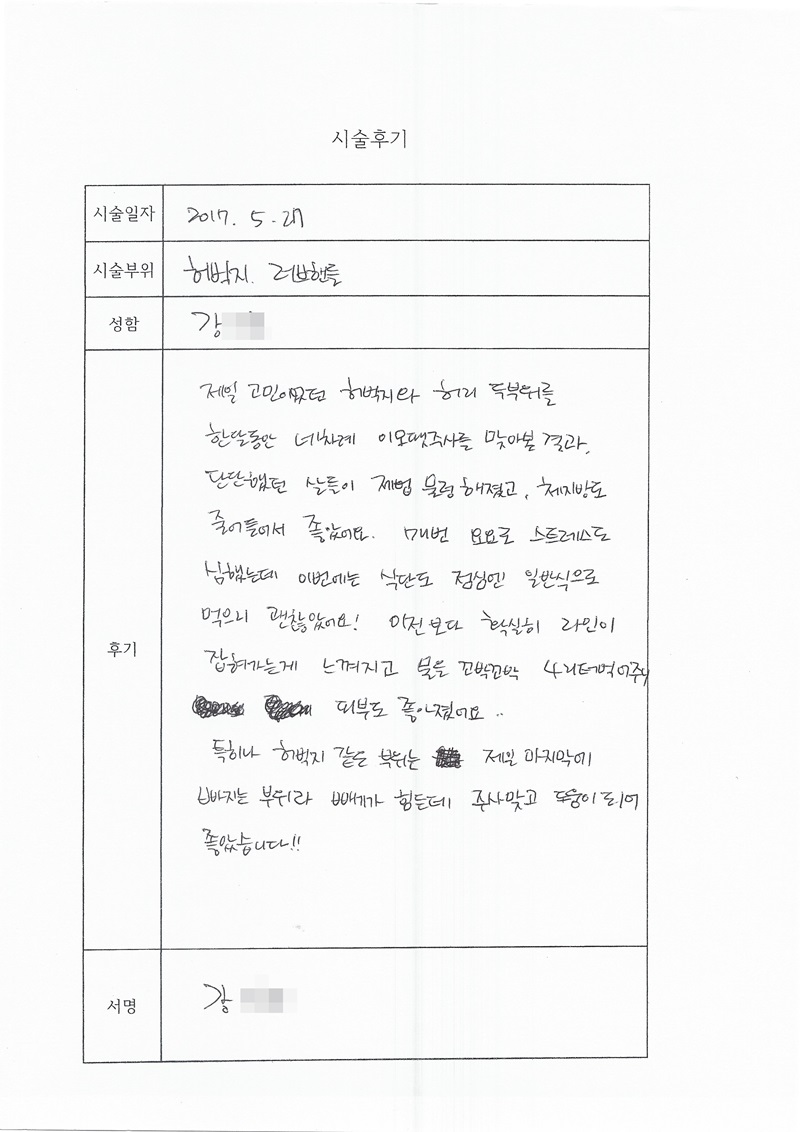 시술후기
시술일자 2017. 5. 27
시술부위 허벅지. 러브핸들
성함 강
후기
제일 고민이였던 허벅지와 허리 두부위를
한달동안 네차례 주사를 맞아본 결과,
단단했던 살들이 제법 물렁해졌고, 체지방도
줄어들어서 좋았어요. 매번 요요로 스트레스도
심했는데 이번에는 식단도 점심엔 일반식으로
먹으니 괜찮았어요! 이전보다 확실히 라인이
잡혀가는게 느껴지고 물을 꼬박꼬박 4리터먹어주니
피부도 좋아졌어요..
특히나 허벅지 같은 부위는 제일 마지막에
빠지는 부위라 빼기가 힘든데 주사맞고 도움이 되어
좋았습니다!!
서명 강